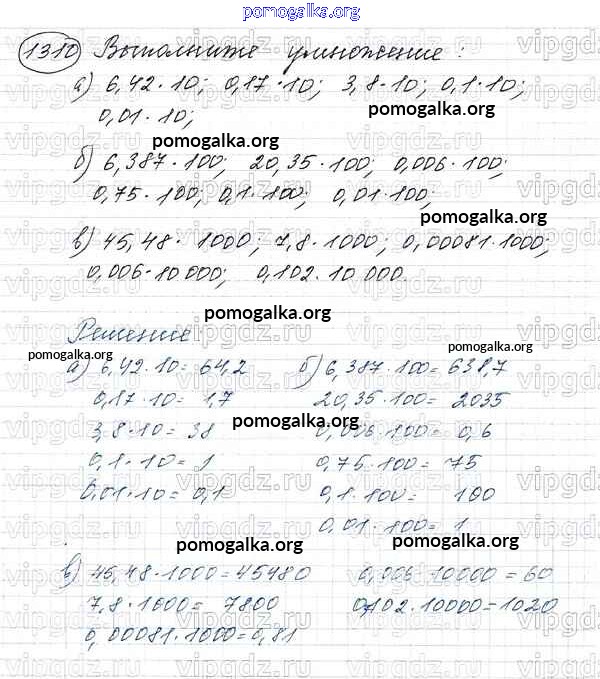 pomogalka.org
1310 Выполните умножение:
а) 6,42·10; 0,17·10; 3,8·10; 0,1·10;
pomogalka.org
0,01·10;
pomogalka.org
б) 6,387·100; 20,35·100; 0,006·100;
0,75·100; 0,1·100; 0,01·100;
pomogalka.org
в) 45,48·1000; 7,8·1000; 0,00081·1000;
0,006·10000; 0,102·10000.
pomogalka.org
Решение
pomogalka.org pomogalka.org
а) 6,42·10=64,2
0,17·10=1,7
3,8·10=38
0,1·10=1
0,01·10=0,1
pomogalka.org
б) 6,387·100=638,7
20,35·100=2035
0,006·100=0,6
0,75·100=75
0,1·100=100
0,01·100=1
pomogalka.org
pomogalka.org
в) 45,48·1000=45480
7,8·1000=7800
0,00081·1000=0,81
0,006·10000=60
0,102·10000=1020
pomogalka.org
vipgdz.ru